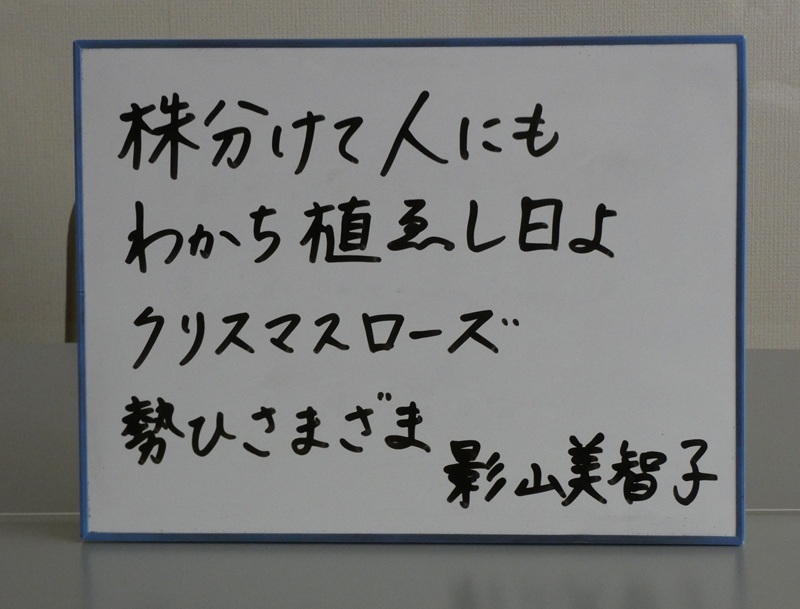 株分けて人にも
わかち植ゑし日よ
クリスマスローズ
勢ひさまざま
影山美智子